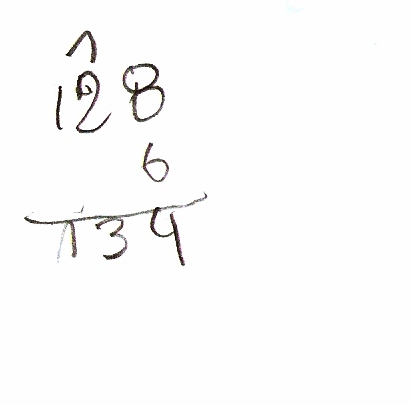 1
128
6
134